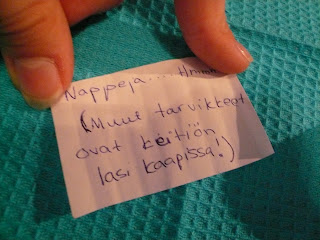 Nappeja... Hmm..
(Muut tarvikkeet
ovat keitiön
lasi kaapissa!)